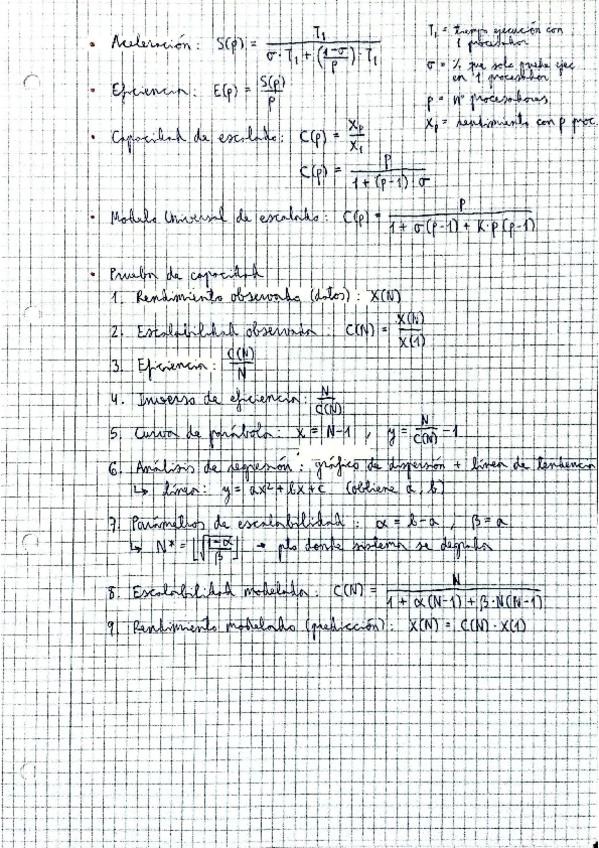 • Aceleración: S(p) = T₁ / (σ·T₁ + ((1-σ)/p)·T₁)
T₁ = tiempo ejecución con 1 procesador
σ = % que solo puede ejec en 1 procesador
• Eficiencia: E(p) = S(p)/p
p = nº procesadores
Xₚ = rendimiento con p proc.
• Capacidad de escalado: C(p) = Xₚ/X₁
C(p) = p / (1 + (p-1)·σ)
• Modelo Universal de escalado: C(p) = p / (1 + σ(p-1) + K·p(p-1))
• Prueba de capacidad
1. Rendimiento observado (datos): X(N)
2. Escalabilidad observada: C(N) = X(N)/X(1)
3. Eficiencia: C(N)/N
4. Inverso de eficiencia: N/C(N)
5. Curva de parábola: x = N-1 , y = N/C(N) - 1
6. Análisis de regresión: gráfico de dispersión + línea de tendencia
↳ línea: y = ax² + bx + c (obtiene a, b)
7. Parámetros de escalabilidad: α = b-a , β = a
↳ N* = ⌊√((1-α)/β)⌋ → pto donde sistema se degrada
8. Escalabilidad modelada: C(N) = N / (1 + α(N-1) + β·N(N-1))
9. Rendimiento modelado (predicción): X(N) = C(N)·X(1)